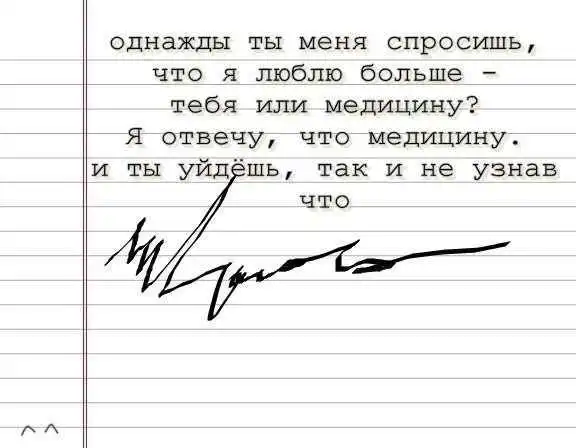 однажды ты меня спросишь,
что я люблю больше –
тебя или медицину?
Я отвечу, что медицину.
и ты уйдёшь, так и не узнав
что
^ ^